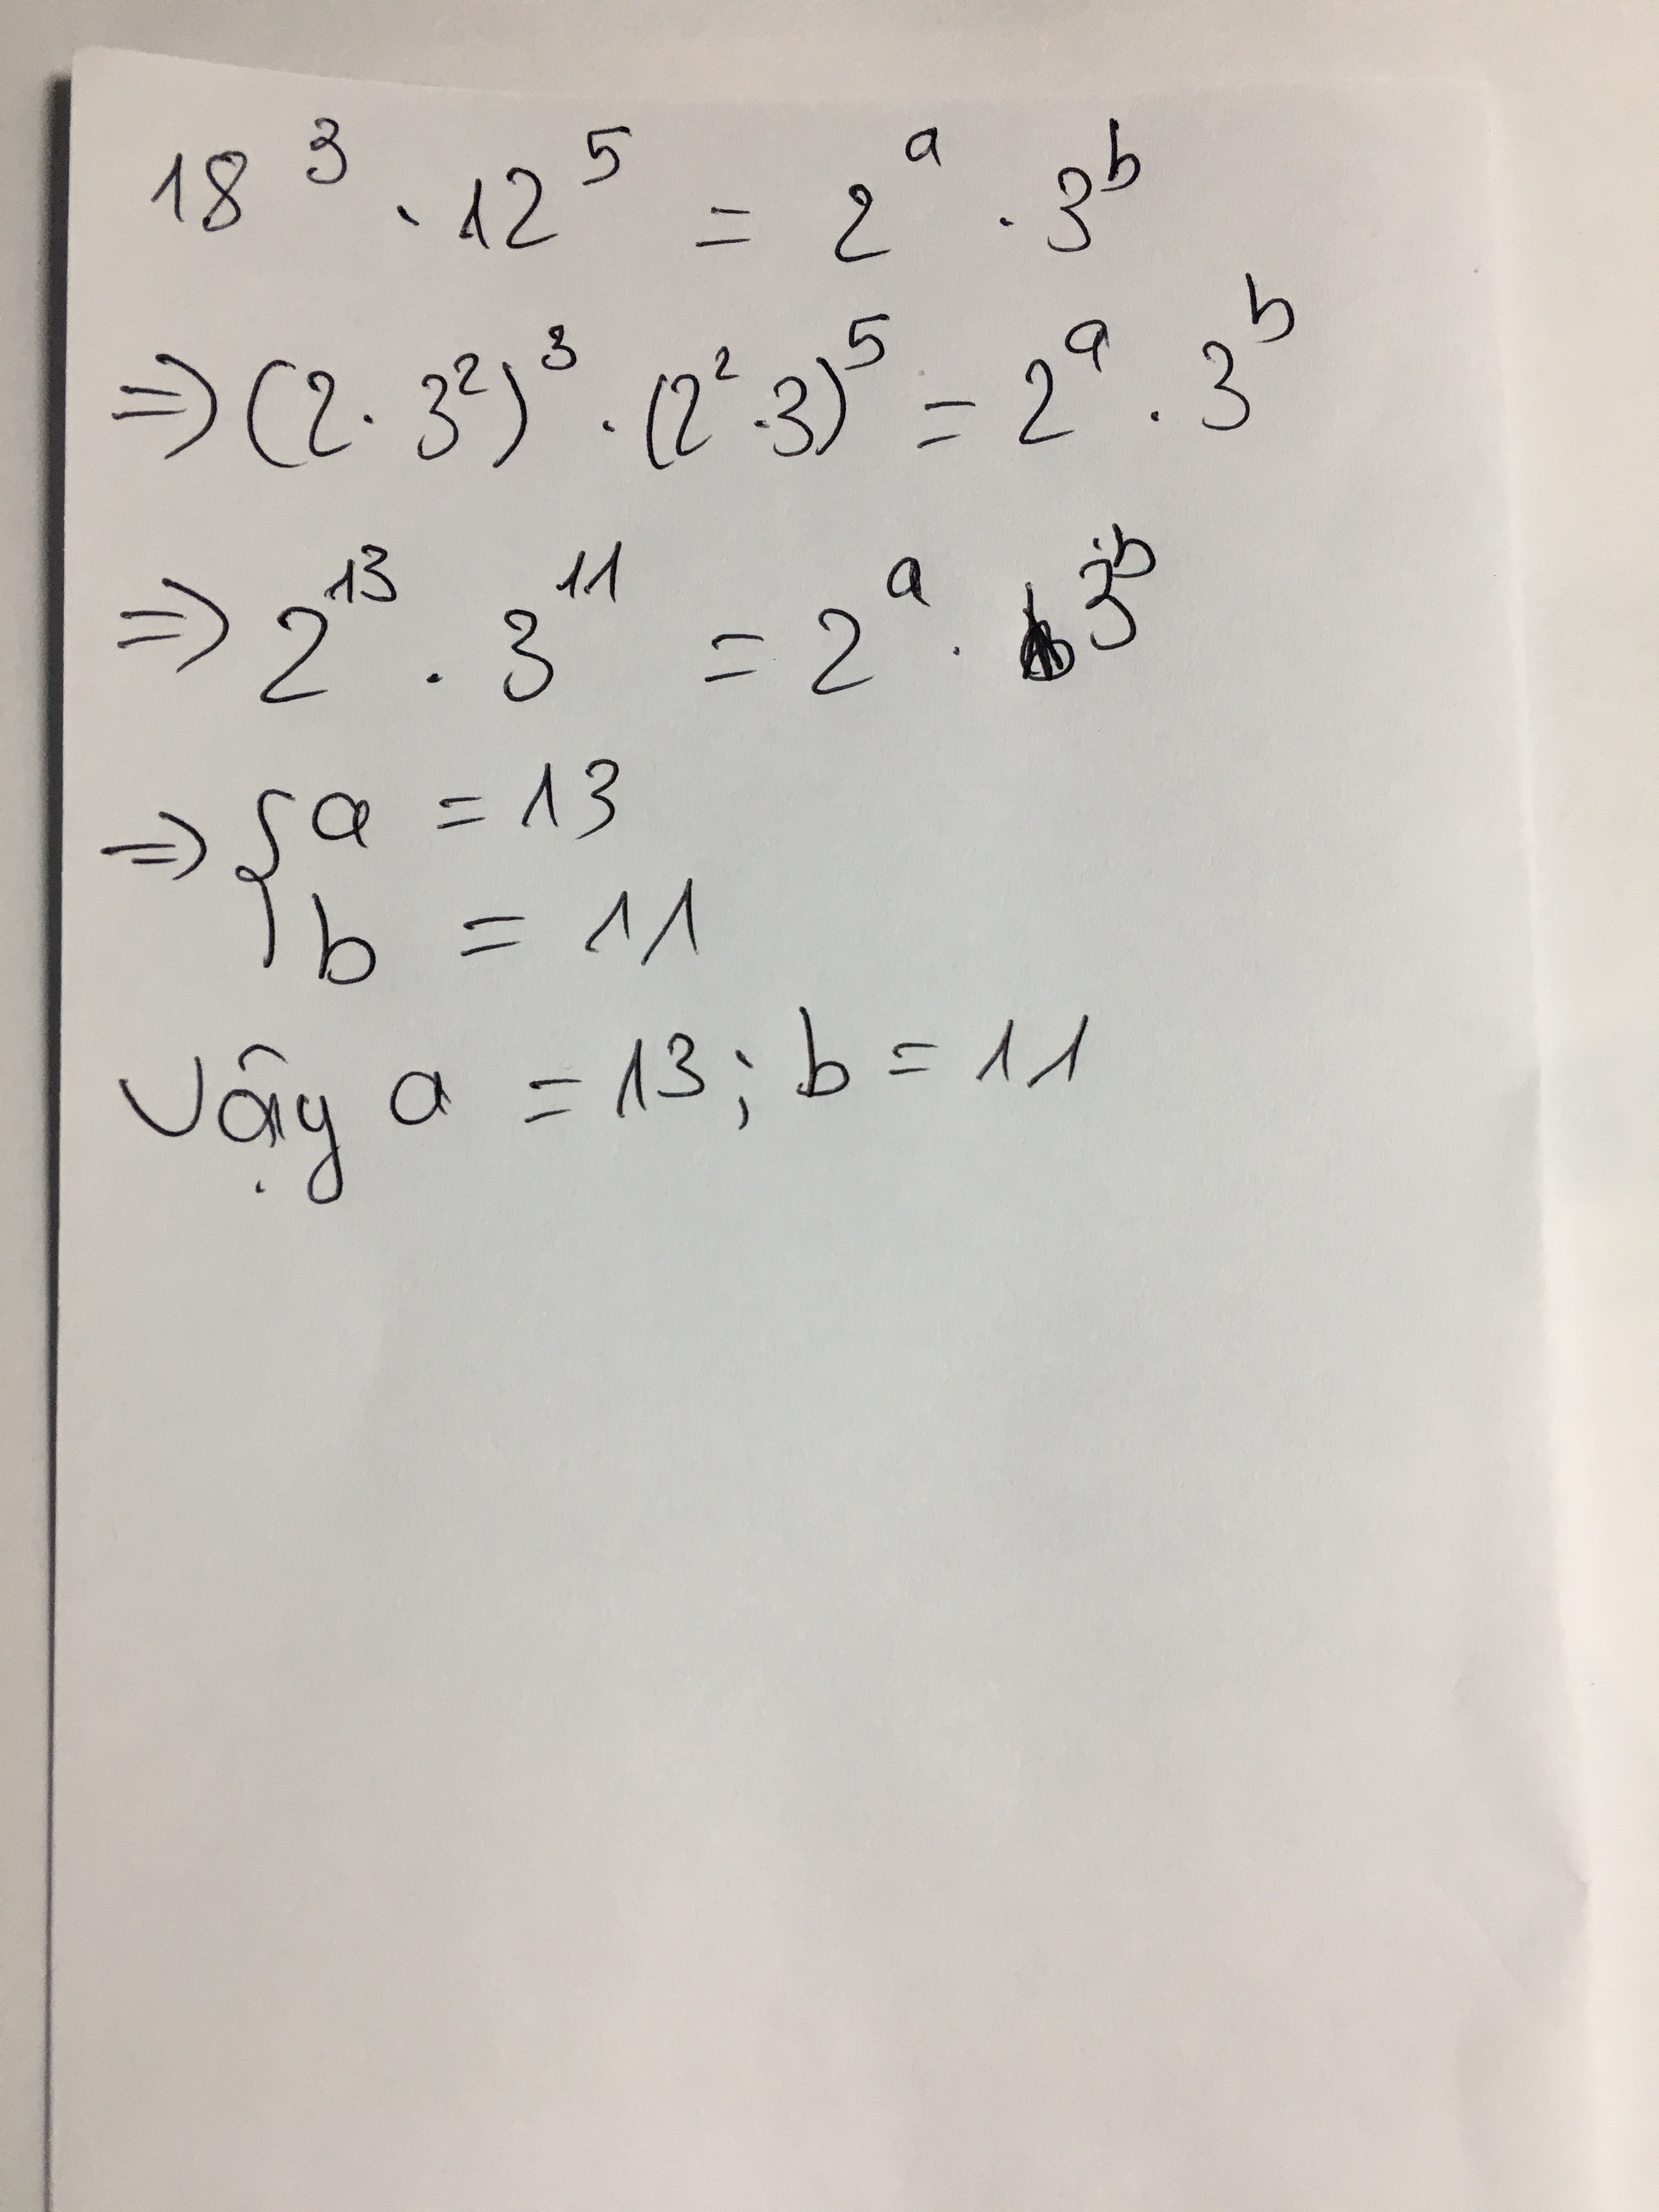 18³ . 12⁵ = 2ᵃ . 3ᵇ
=> (2 . 3²)³ . (2² . 3)⁵ = 2ᵃ . 3ᵇ
=> 2¹³ . 3¹¹ = 2ᵃ . 3ᵇ
=> { a = 13
b = 11
Vậy a = 13 ; b = 11